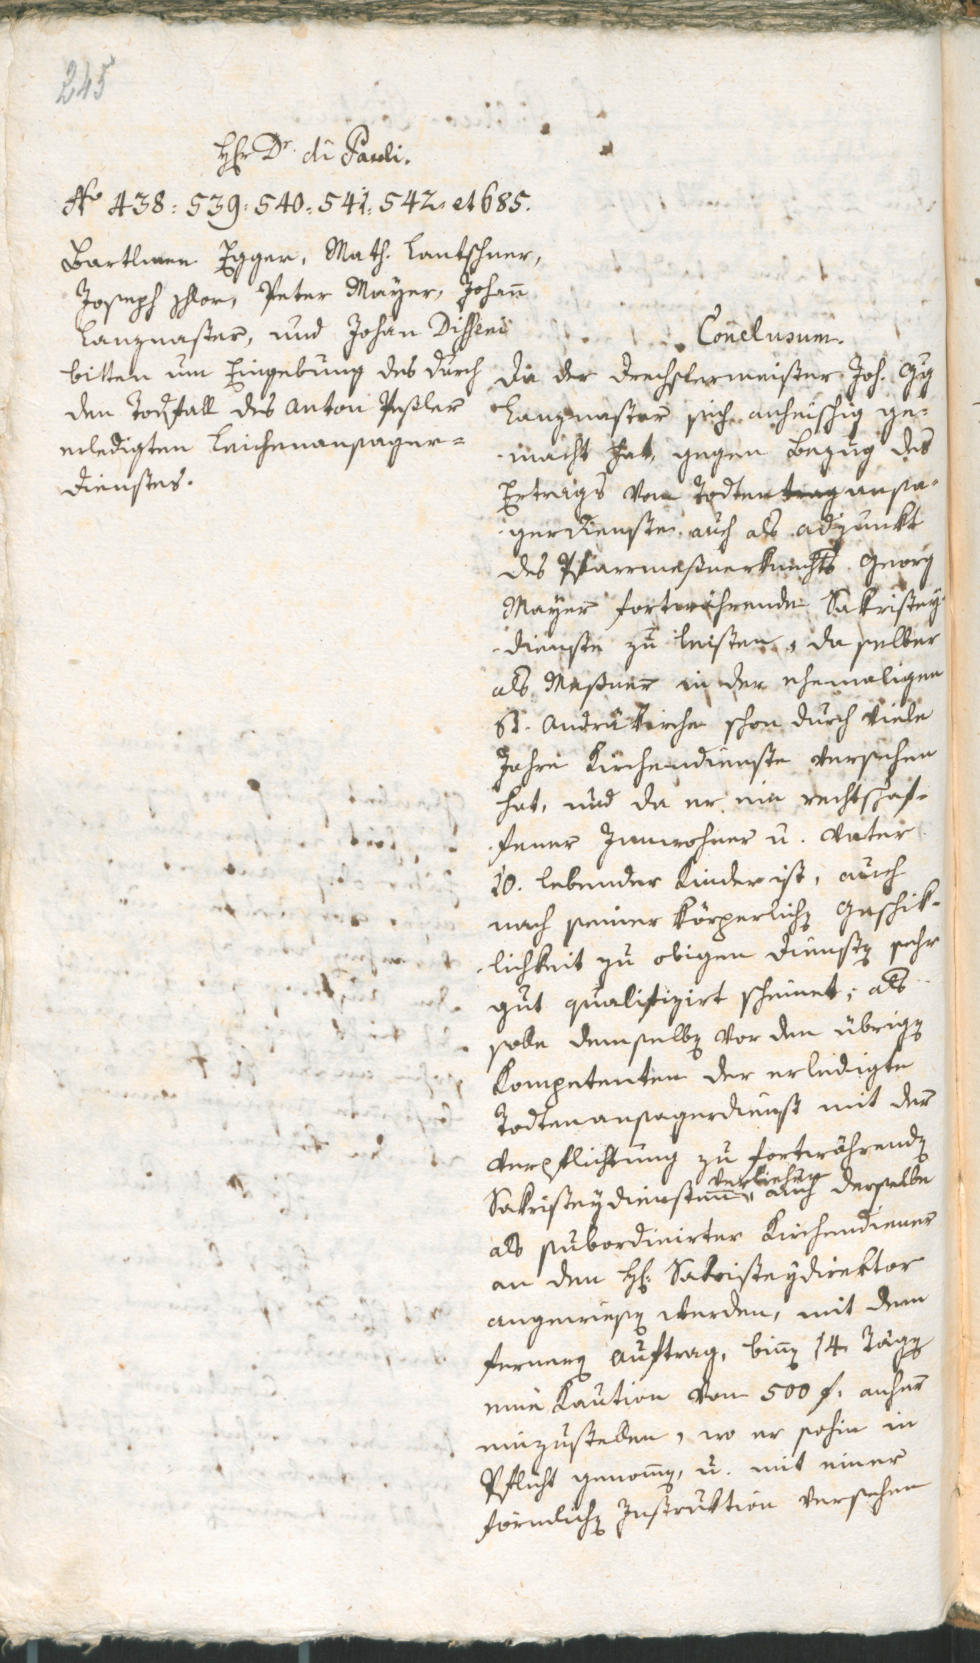 245
HHr Dr. di Pauli.
No 438: 539: 540: 541: 542. et 685.
Bartlmee Egger, Math. Lantschner,
Joseph Flor, Peter Mayer, Johann
Lanznaster, und Johan Disseni
bitten um Eingebung des durch
den Todfall des Anton Peßler
erledigten Leichenansager-
dienstes.
Conclusum.
Da der Drechslermeister Joh. Gg
Lanznaster sich anheischig ge-
macht hat, gegen Bezug des
Ertrags vom Todtentrag ansa-
gerdienste auch als adjunkt
des Pfarrmeßnerknechts Georg
Mayer fortwährende Sakristey
dienste zu leisten, da selber
als Meßner in der ehemaligen
St. Andräkirche schon durch viele
Jahre Kirchendienste versehen
hat, und da er ein rechtschaf-
fener Innwohner u. Vater
10. lebender Kinder ist, auch
nach seiner körperlichen Geschik-
lichkeit zu obigen Diensten sehr
gut qualifizirt scheinet; als
solle demselben vor den übrigen
Kompetenten der erledigte
Todtenansagerdienst mit der
Verpflichtung zu fortwährenden
verliehen
Sakristeydiensten, auch derselbe
als subordinirter Kirchendiener
an den H: Sakristeydirektor
angewiesen werden, mit dem
fernern Auftrag, binnen 14 Tägen
eine Kaution von 500 f. anher
einzustellen, wo er sohin in
Pflicht genommen, u. mit einer
förmlichen Instruktion versehen